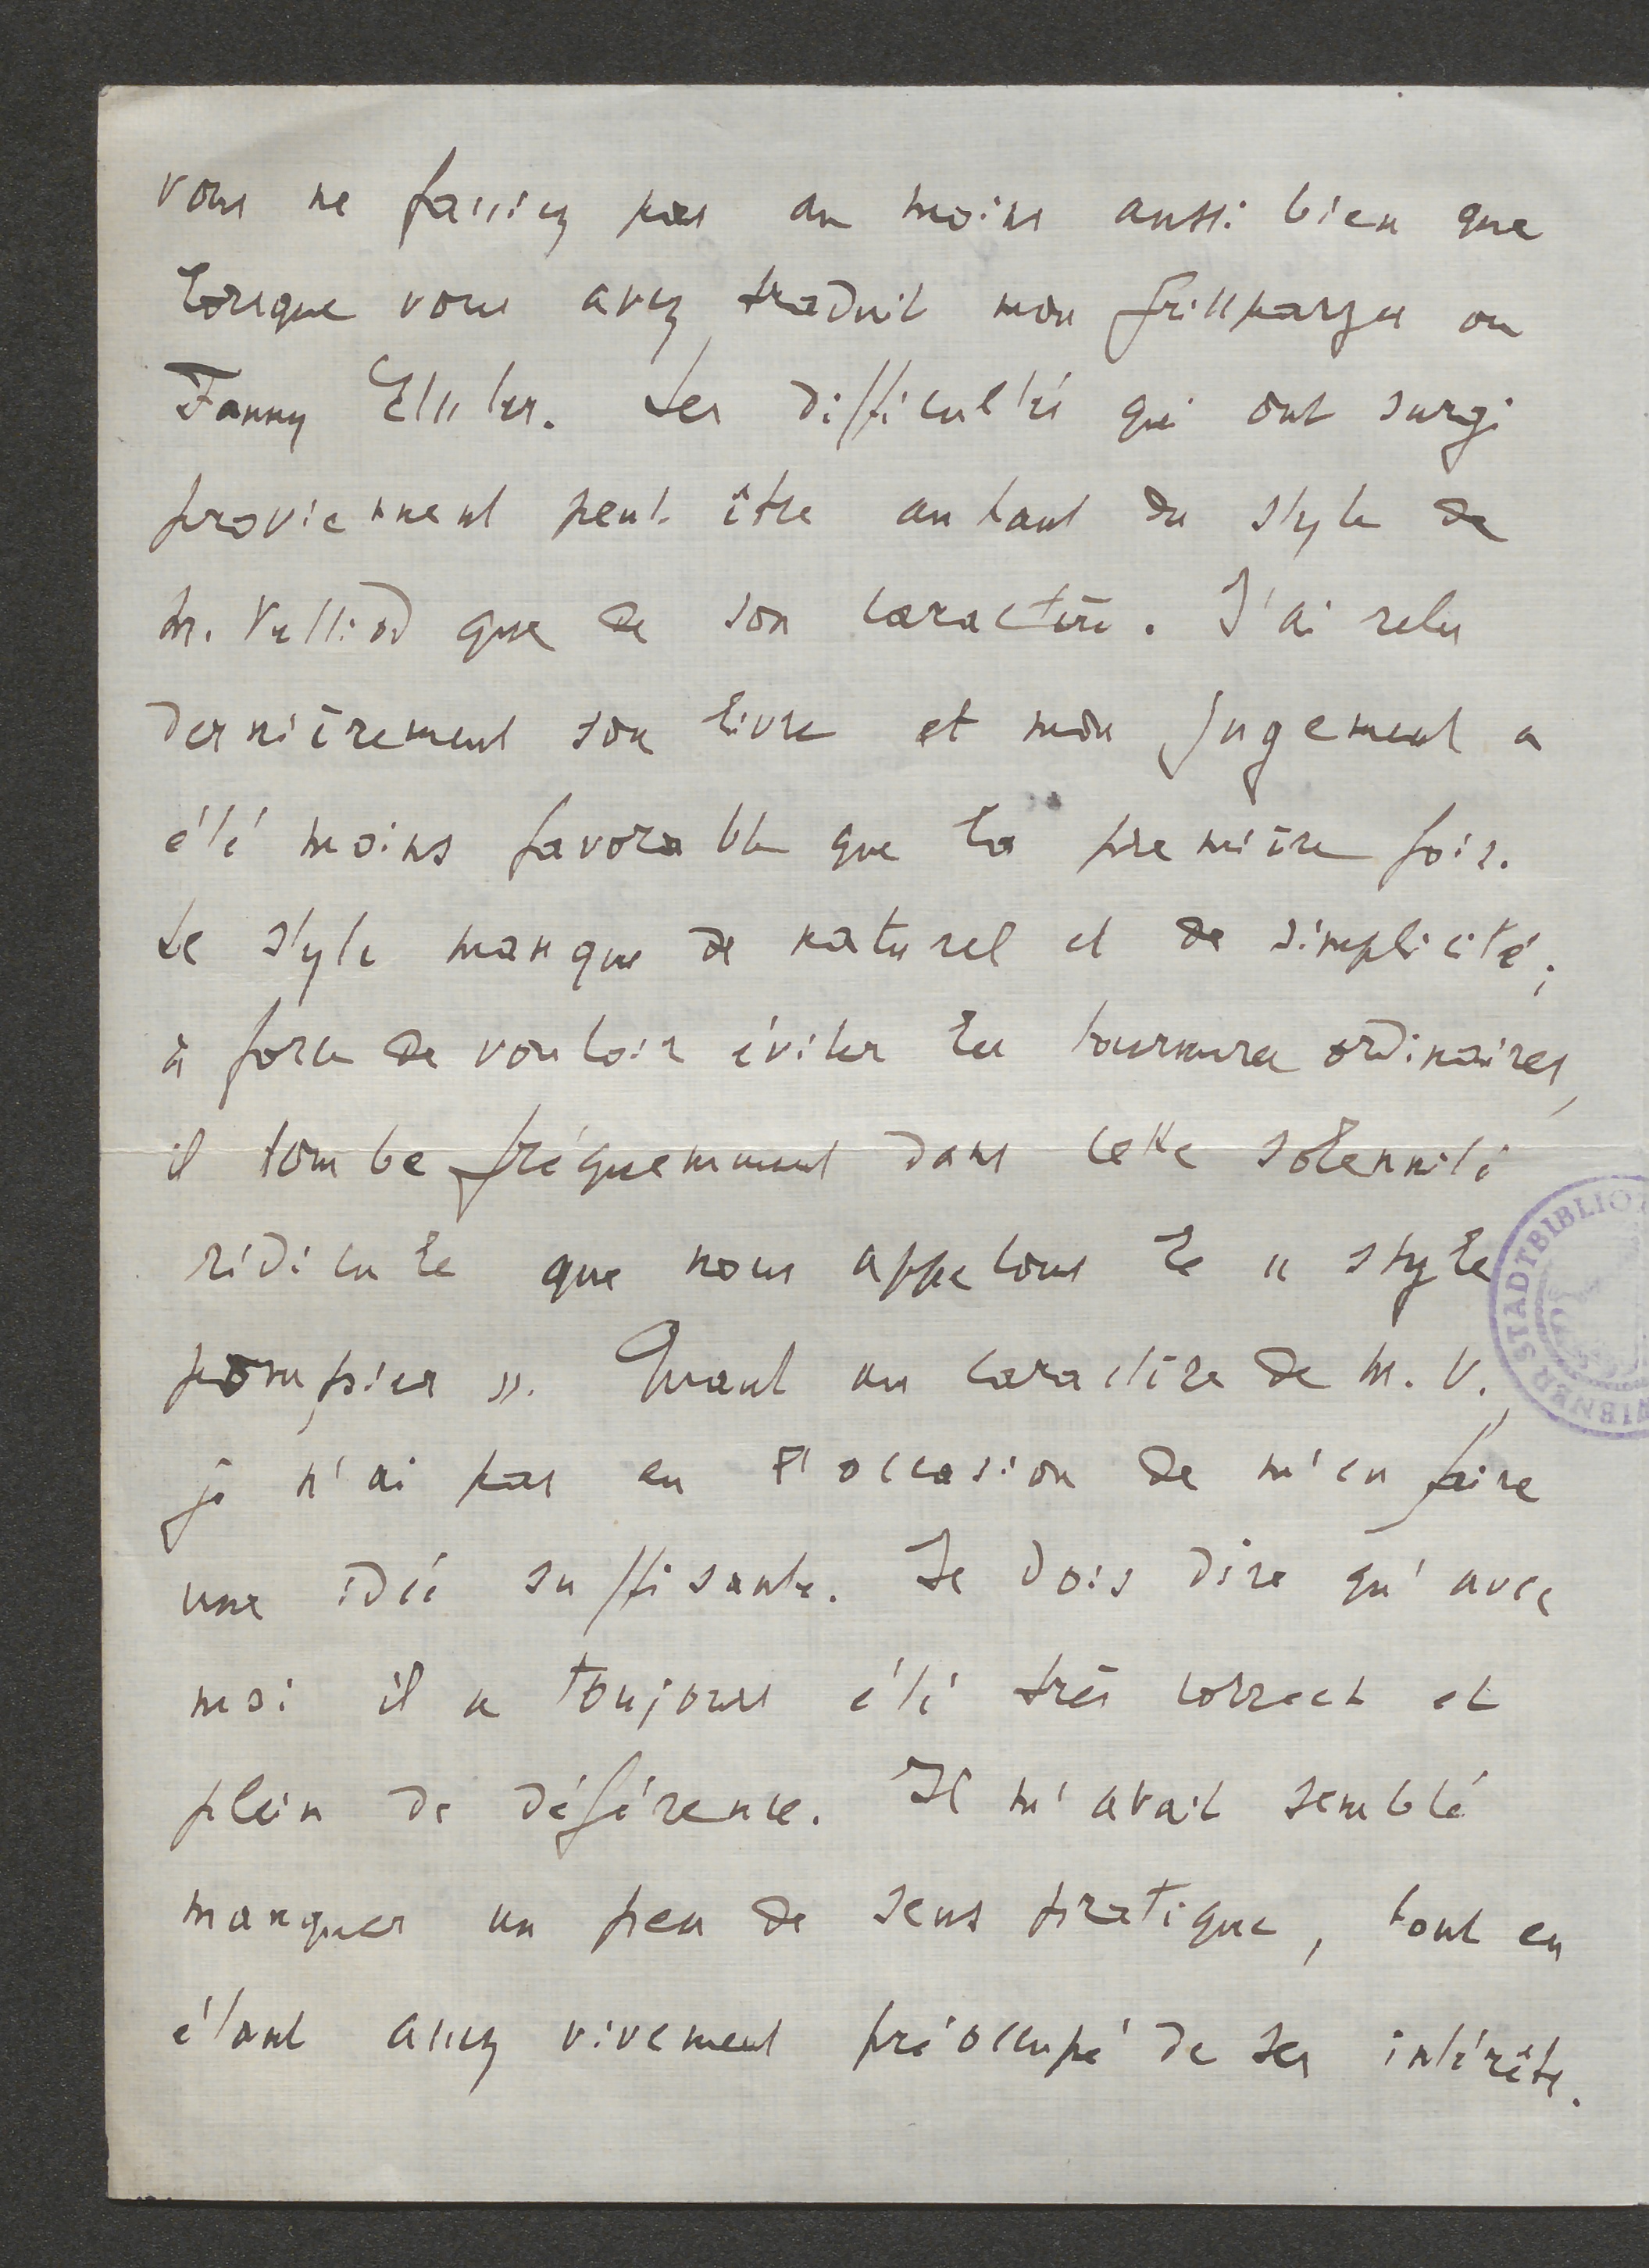 vous ne fassiez pas au moins aussi bien que
lorsque vous avez traduit mon Grillparzer ou
Fanny Elssler. Les difficultés qui ont surgi
proviennent peut-être autant du style de
M. Vulliod que de son caractère. J'ai relu
dernièrement son livre et mon jugement a
été moins favorable que la première fois.
Le style manque de naturel et de simplicité;
à force de vouloir éviter les tournures ordinaires,
il tombe fréquemment dans cette solennité
ridicule que nous appelons le « style
pompier ». Quant au caractère de M. V.,
je n'ai pas eu l'occasion de m'en faire
une idée suffisante. Je dois dire qu'avec
moi il a toujours été très correct et
plein de déférence. Il m'avait semblé
manquer un peu de sens pratique, tout en
étant assez vivement préoccupé de ses intérêts.
WIENER STADTBIBLIO